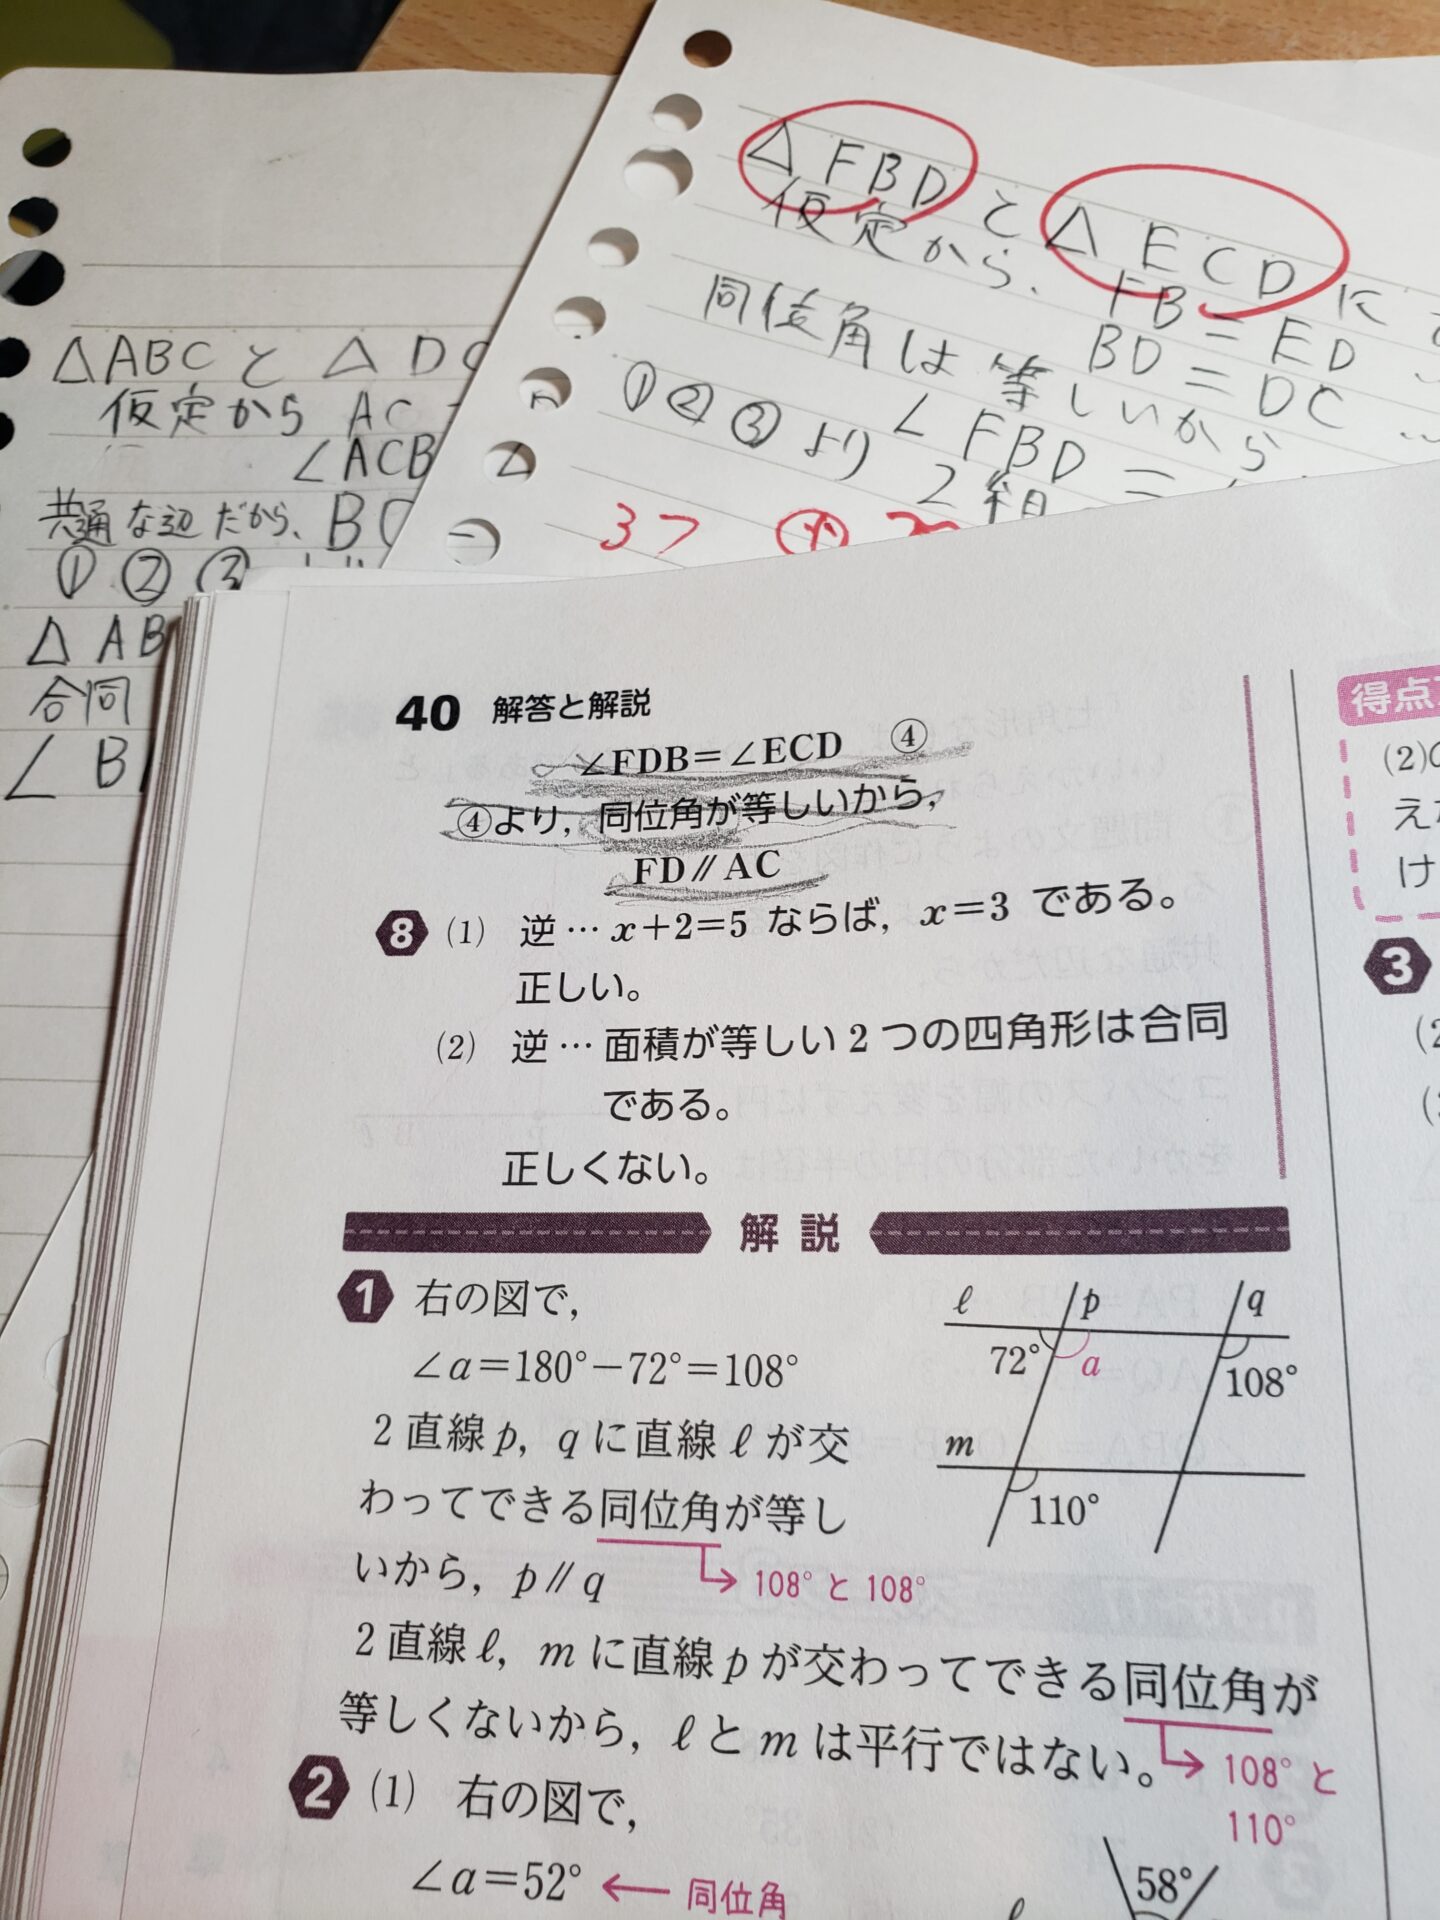 △FBDと△ECDに
仮定から、FB=ED
BD=DC
同位角は等しいから
∠FBD=
①②③より 2組
37
△ABCと△DC
仮定から AC
∠ACB
共通な辺だから、BC
①②③
△AB
合同
∠B
40 解答と解説
∠FDB=∠ECD ④
④より，同位角が等しいから，
FD∥AC
8 (1) 逆…x+2=5 ならば，x=3 である。
正しい。
(2) 逆…面積が等しい2つの四角形は合同
である。
正しくない。
解説
1 右の図で，
∠a=180°−72°=108°
2直線p，qに直線ℓが交
わってできる同位角が等し
いから，p∥q
108°と108°
2直線ℓ，mに直線pが交わってできる同位角が
等しくないから，ℓとmは平行ではない。
108°と
110°
ℓ p q
72° a 108°
m
110°
2 (1) 右の図で，
∠a=52° ← 同位角
58°
ℓ
得点
(2)
え
け
3